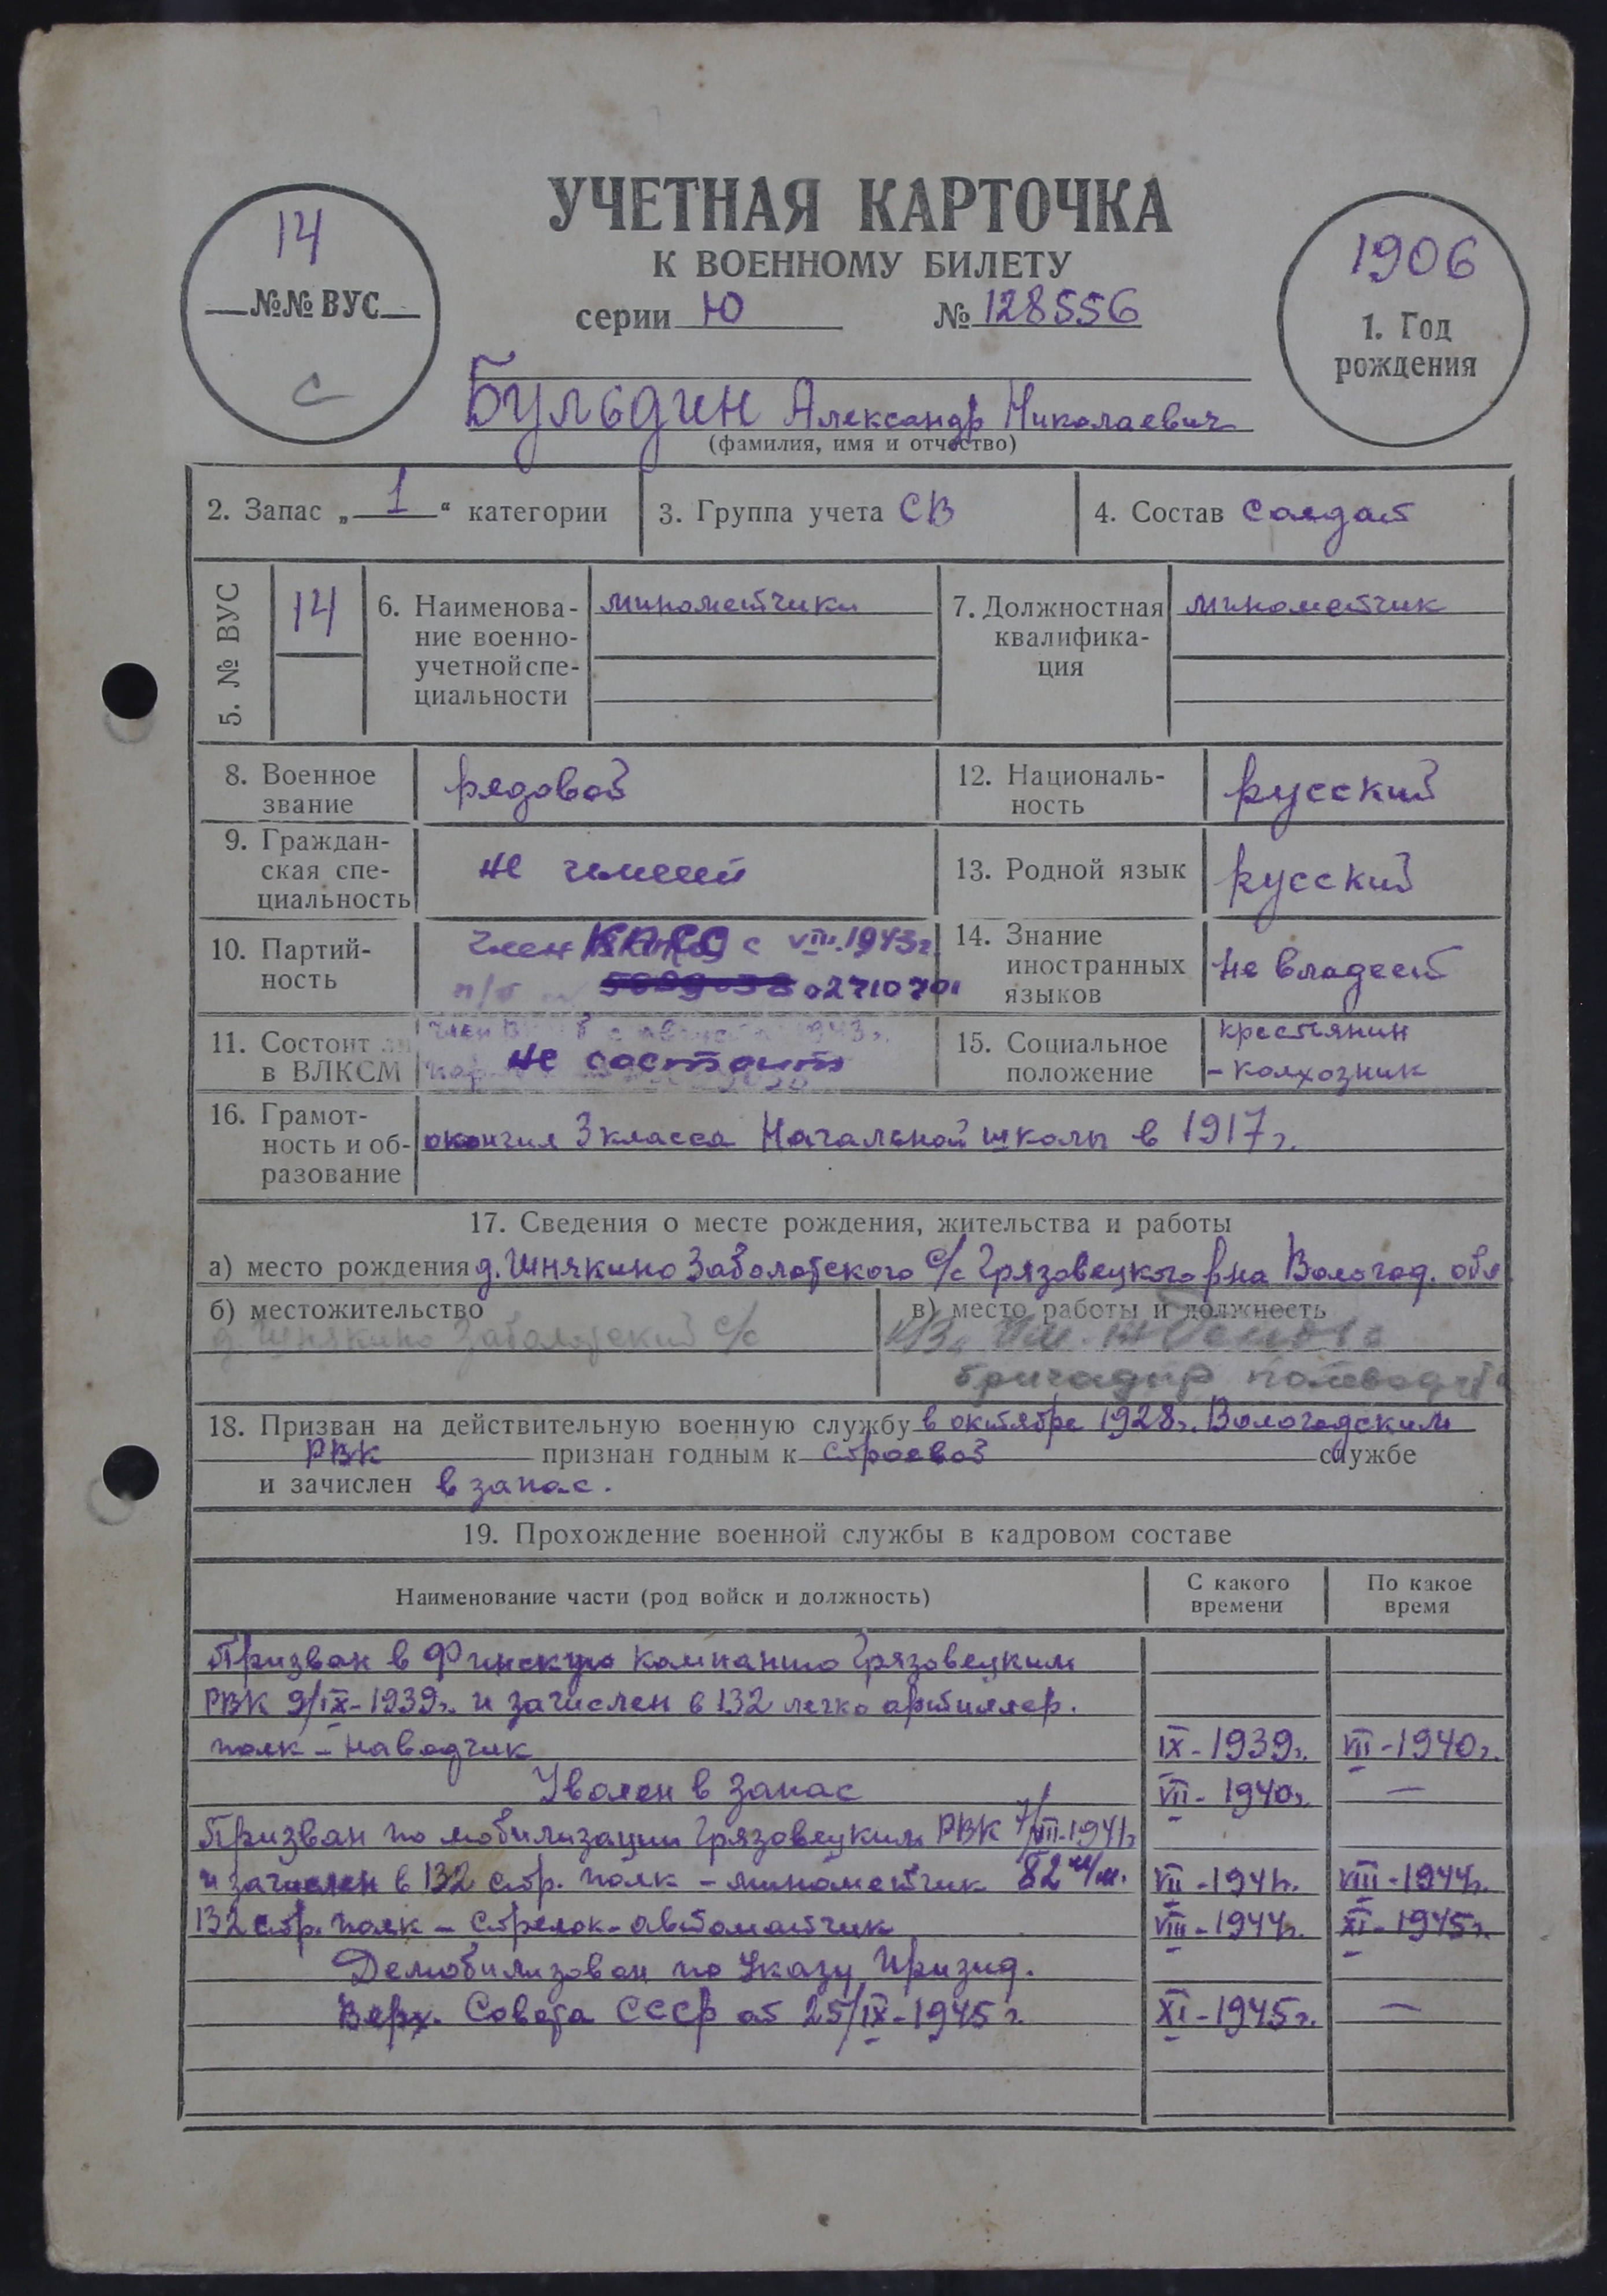 УЧЕТНАЯ КАРТОЧКА
К ВОЕННОМУ БИЛЕТУ
14
№№ ВУС
С
серии Ю № 128556
1906
1. Год
рождения
Бульдин Александр Николаевич
(фамилия, имя и отчество)
2. Запас „1“ категории
3. Группа учета СВ
4. Состав Солдат
5. № ВУС
14
6. Наименова-
ние военно-
учетной спе-
циальности
минометчики
7. Должностная
квалифика-
ция
минометчик
8. Военное
звание
рядовой
12. Националь-
ность
русский
9. Граждан-
ская спе-
циальность
не имеет
13. Родной язык
русский
10. Партий-
ность
член с VIII.1943г.
п/б 02710701
14. Знание
иностранных
языков
не владеет
11. Состоит ли
в ВЛКСМ
не состоит
15. Социальное
положение
крестьянин
- колхозник
16. Грамот-
ность и об-
разование
окончил 3 класса Начальной школы в 1917г.
17. Сведения о месте рождения, жительства и работы
а) место рождения д. Шнякино Заболотского с/с Грязовецкого р-на Вологод. обл
б) местожительство
д. Шнякино Заболотский с/с
в) место работы и должность
бригадир
18. Призван на действительную военную службу в октябре 1928г. Вологодским
РВК признан годным к строевой службе
и зачислен в запас.
19. Прохождение военной службы в кадровом составе
Наименование части (род войск и должность)
С какого
времени
По какое
время
Призван в Финскую компанию Грязовецким
РВК 9/IX-1939г. и зачислен в 132 легко артиллер.
полк - наводчик IX-1939г. VII-1940г.
Уволен в запас VII-1940г. —
Призван по мобилизации Грязовецким РВК 7/VII-1941г
и зачислен в 132 стр. полк - минометчик 82 м/м. VII-1941г. VIII-1944г.
132 стр. полк - Стрелок-автоматчик VIII-1944г. XI-1945г.
Демобилизован по Указу Призид.
Верх. Совета СССР от 25/IX-1945г. XI-1945г. —